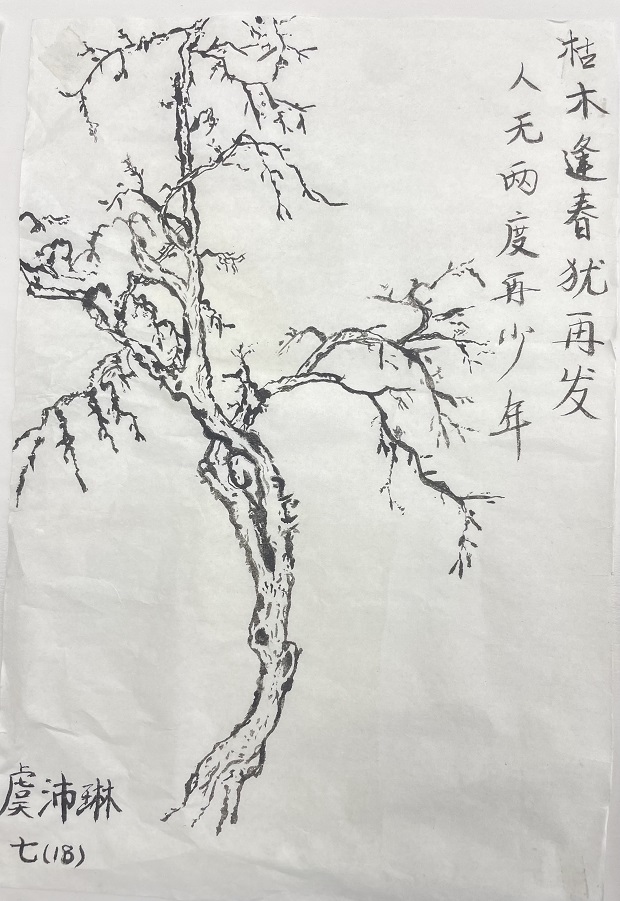 枯木逢春犹再发
人无两度再少年
虞沛琳
七(18)